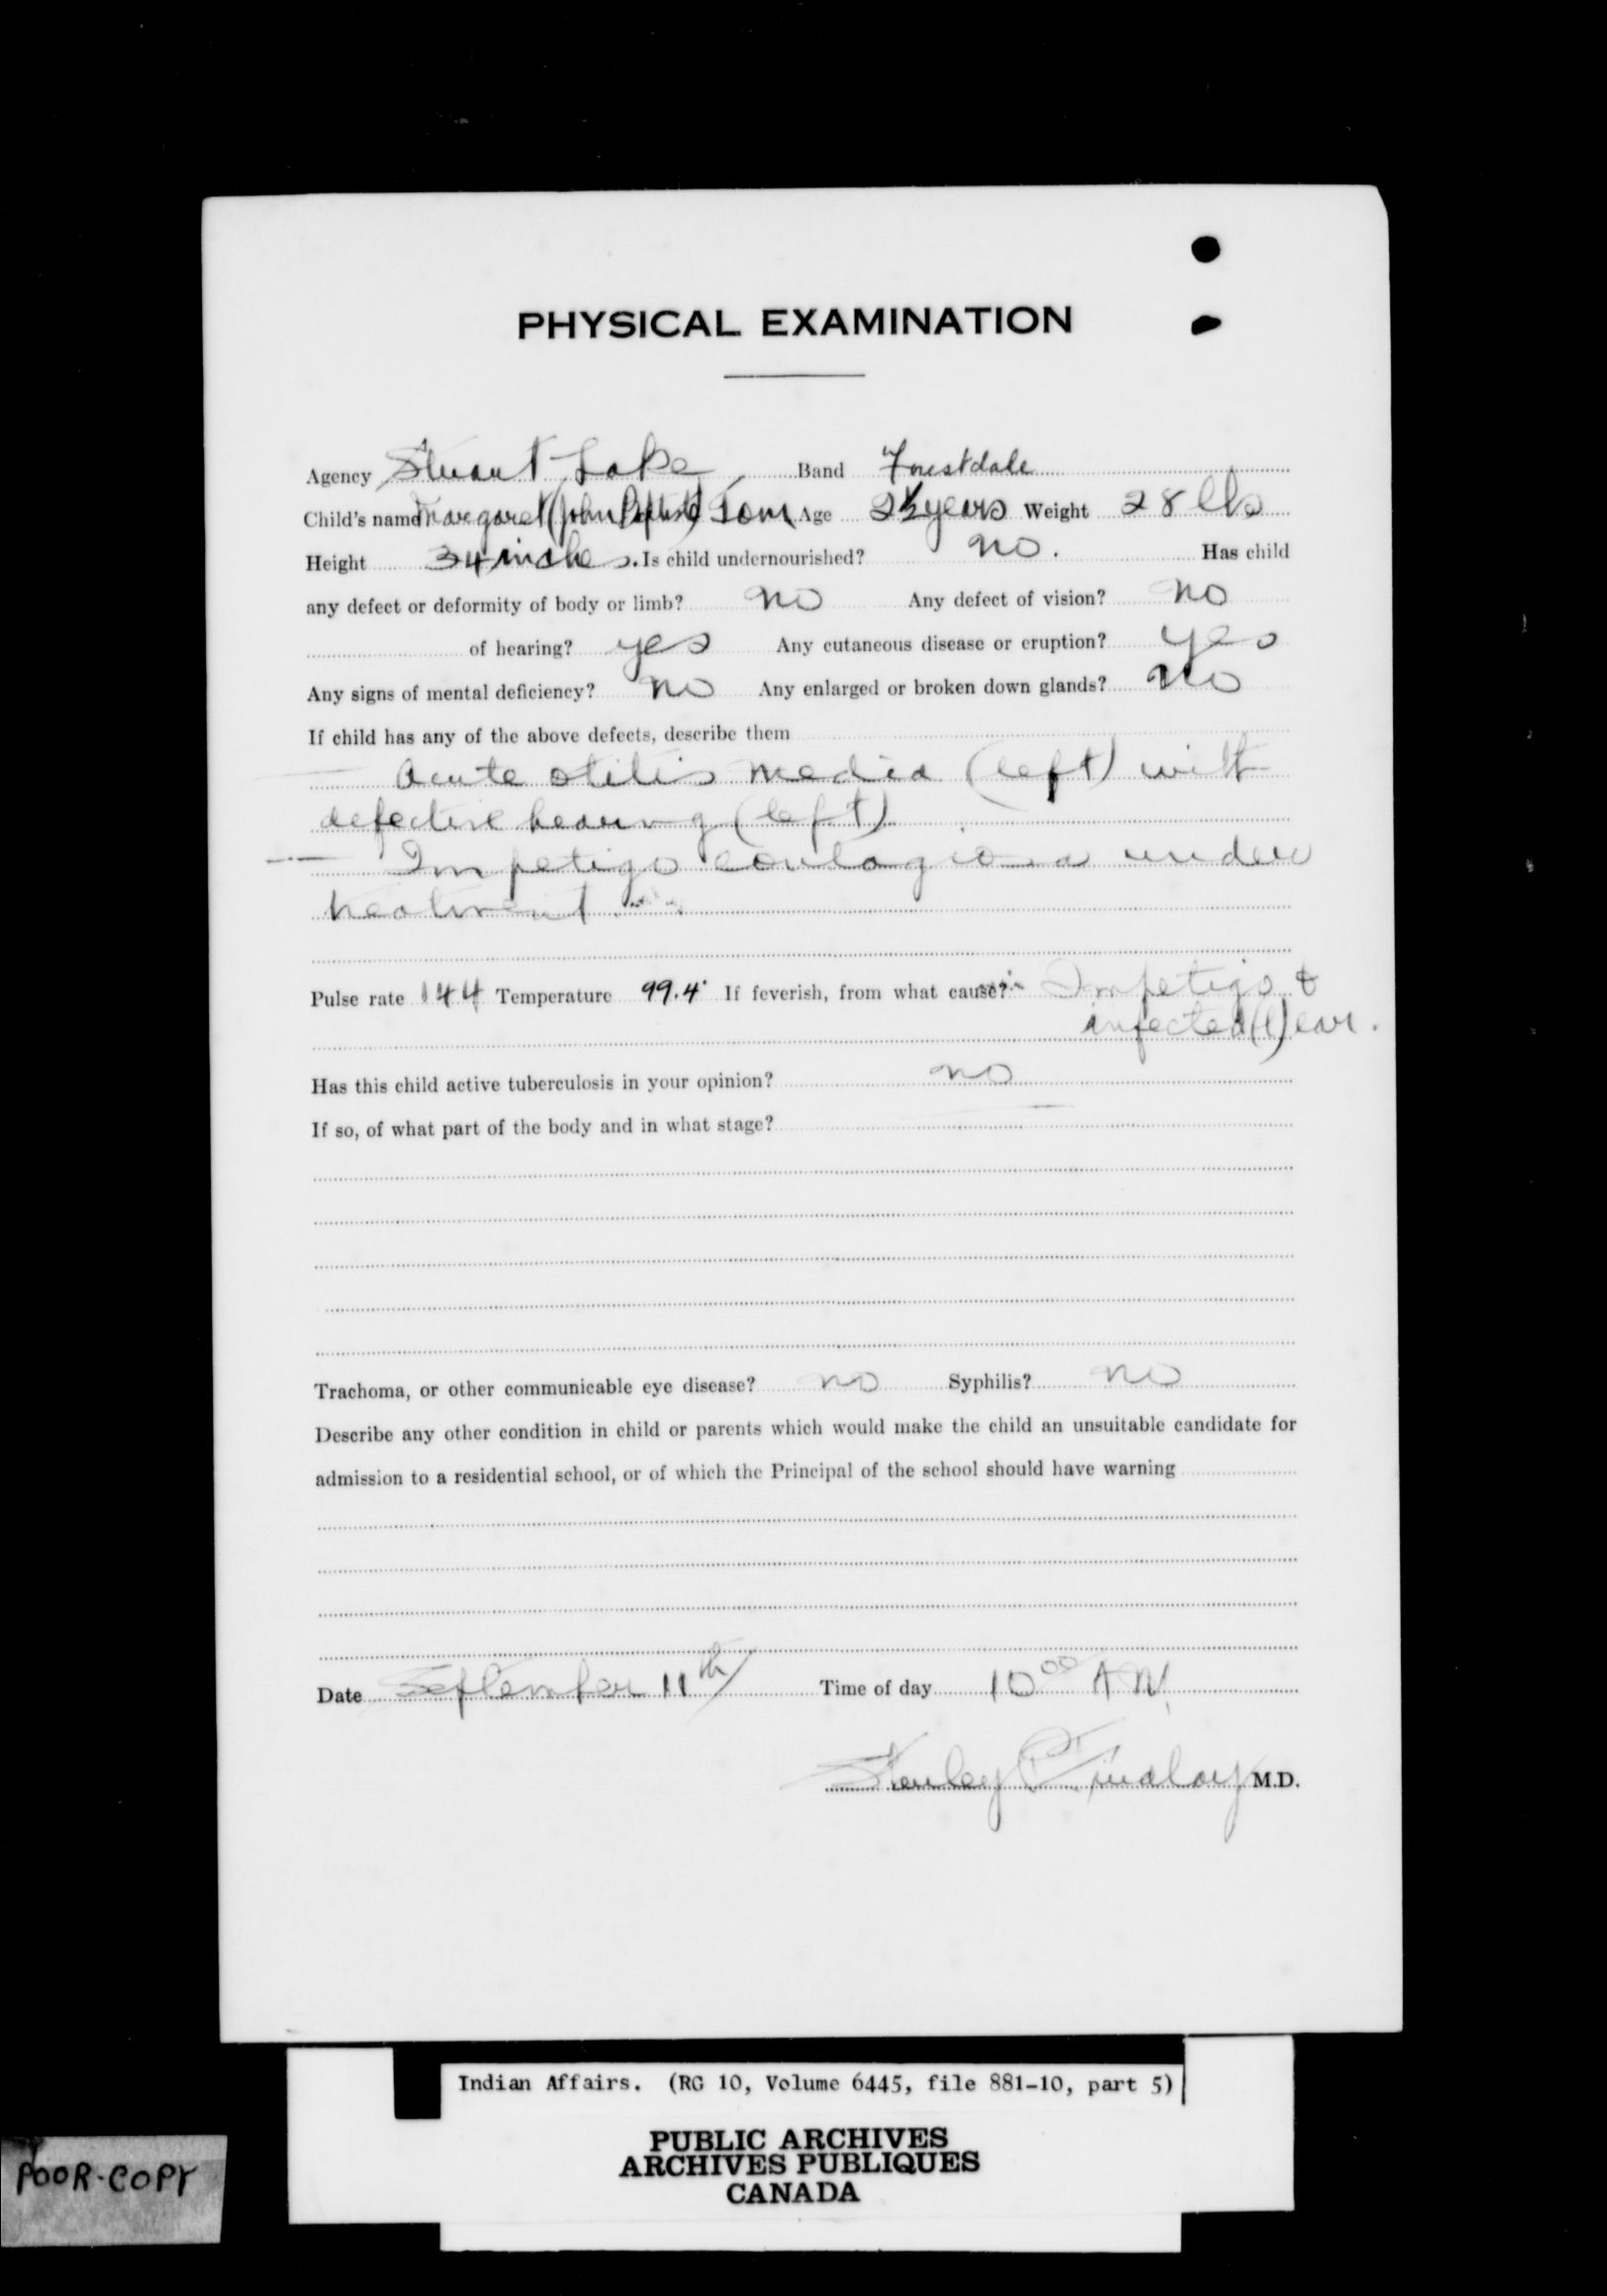 PHYSICAL EXAMINATION
Agency Stuart Lake Band Forestdale
Child's name Margaret (John Baptiste) Tom Age 2½ years Weight 28 lbs
Height 34 inches. Is child undernourished? no. Has child
any defect or deformity of body or limb? no Any defect of vision? no
of hearing? yes Any cutaneous disease or eruption? yes
Any signs of mental deficiency? no Any enlarged or broken down glands? no
If child has any of the above defects, describe them
— Acute otitis media (left) with
defective hearing (left)
— Impetigo contagiosa under
treatment
Pulse rate 144 Temperature 99.4° If feverish, from what cause? Impetigo &
infected (l) ear.
Has this child active tuberculosis in your opinion? no
If so, of what part of the body and in what stage?
Trachoma, or other communicable eye disease? no Syphilis? no
Describe any other condition in child or parents which would make the child an unsuitable candidate for
admission to a residential school, or of which the Principal of the school should have warning
Date September 11th Time of day 10 00 A M
Stanley Findlay M.D.
Indian Affairs. (RG 10, Volume 6445, file 881-10, part 5)
PUBLIC ARCHIVES
ARCHIVES PUBLIQUES
CANADA
POOR-COPY